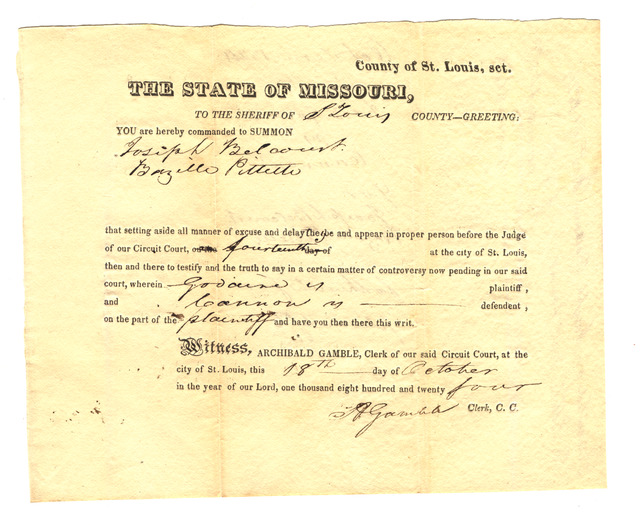 County of St. Louis, sct.
THE STATE OF MISSOURI,
TO THE SHERIFF OF St Louis COUNTY—GREETING:
YOU are hereby commanded to SUMMON
Joseph Belcourt.
Bazille Pillette
that setting aside all manner of excuse and delay they be and appear in proper person before the Judge
of our Circuit Court, on the fourteenth day of at the city of St. Louis,
then and there to testify and the truth to say in a certain matter of controversy now pending in our said
court, wherein Godaire is plaintiff,
and Cannon is defendent,
on the part of the plaintiff and have you then there this writ.
Witness, ARCHIBALD GAMBLE, Clerk of our said Circuit Court, at the
city of St. Louis, this 18th day of October
in the year of our Lord, one thousand eight hundred and twenty four
A Gamble Clerk, C. C.